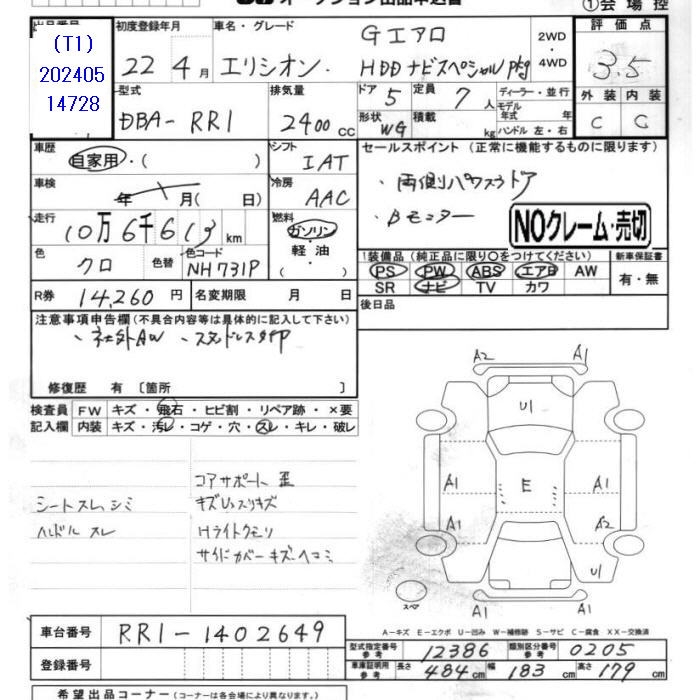 オークション出品申込書
①会場控
出品番号
(T1)
202405
14728
初度登録年月
22 4月
車名・グレード
エリシオン・
Gエアロ
HDDナビスペシャルpkg
2WD
4WD
評価点
3.5
外装 内装
C C
型式
DBA-RR1
排気量
2400cc
ドア 5
定員 7人
形状 WG
積載 kg
ディーラー・並行
モデル年式 年
ハンドル 左・右
車歴
自家用・( )
シフト
IAT
車検
年 月( 日)
冷房
AAC
走行
10万6千613km
燃料
ガソリン
軽油
・( )
色
クロ
色替
色コード
NH731P
R券 14,260円
名変期限 月 日
セールスポイント (正常に機能するものに限ります)
・両側パワスラドア
・Bモニター
NOクレーム・売切
装備品(純正品に限り○をつけてください)
PS PW ABS エアB AW
SR ナビ TV カワ
新車保証書
有・無
後日品
注意事項申告欄(不具合内容等は具体的に記入して下さい)
、社外AW 、スタッドレスタイヤ
修復歴 有 〔箇所 〕
検査員 FW キズ・飛石・ヒビ割・リペア跡・×要
記入欄 内装 キズ・汚レ・コゲ・穴・スレ・キレ・破レ
コアサポート歪
シートスレ、シミ キズUスリキズ
ハンドル スレ Hライトクモリ
サイドカバーキズ・ヘコミ
A2 A1
U1
A1 E A1
A1 A2
U1
スペア
A1 A1
A-キズ E-エクボ U-凹み W-補修跡 S-サビ C-腐食 XX-交換済
車台番号 RR1-1402649
登録番号
型式指定番号 参考 12386 類別区分番号 参考 0205
車庫証明用 参考 長さ 484cm 幅 183cm 高さ 179cm
希望出品コーナー(コーナーは各会場により異なります。)